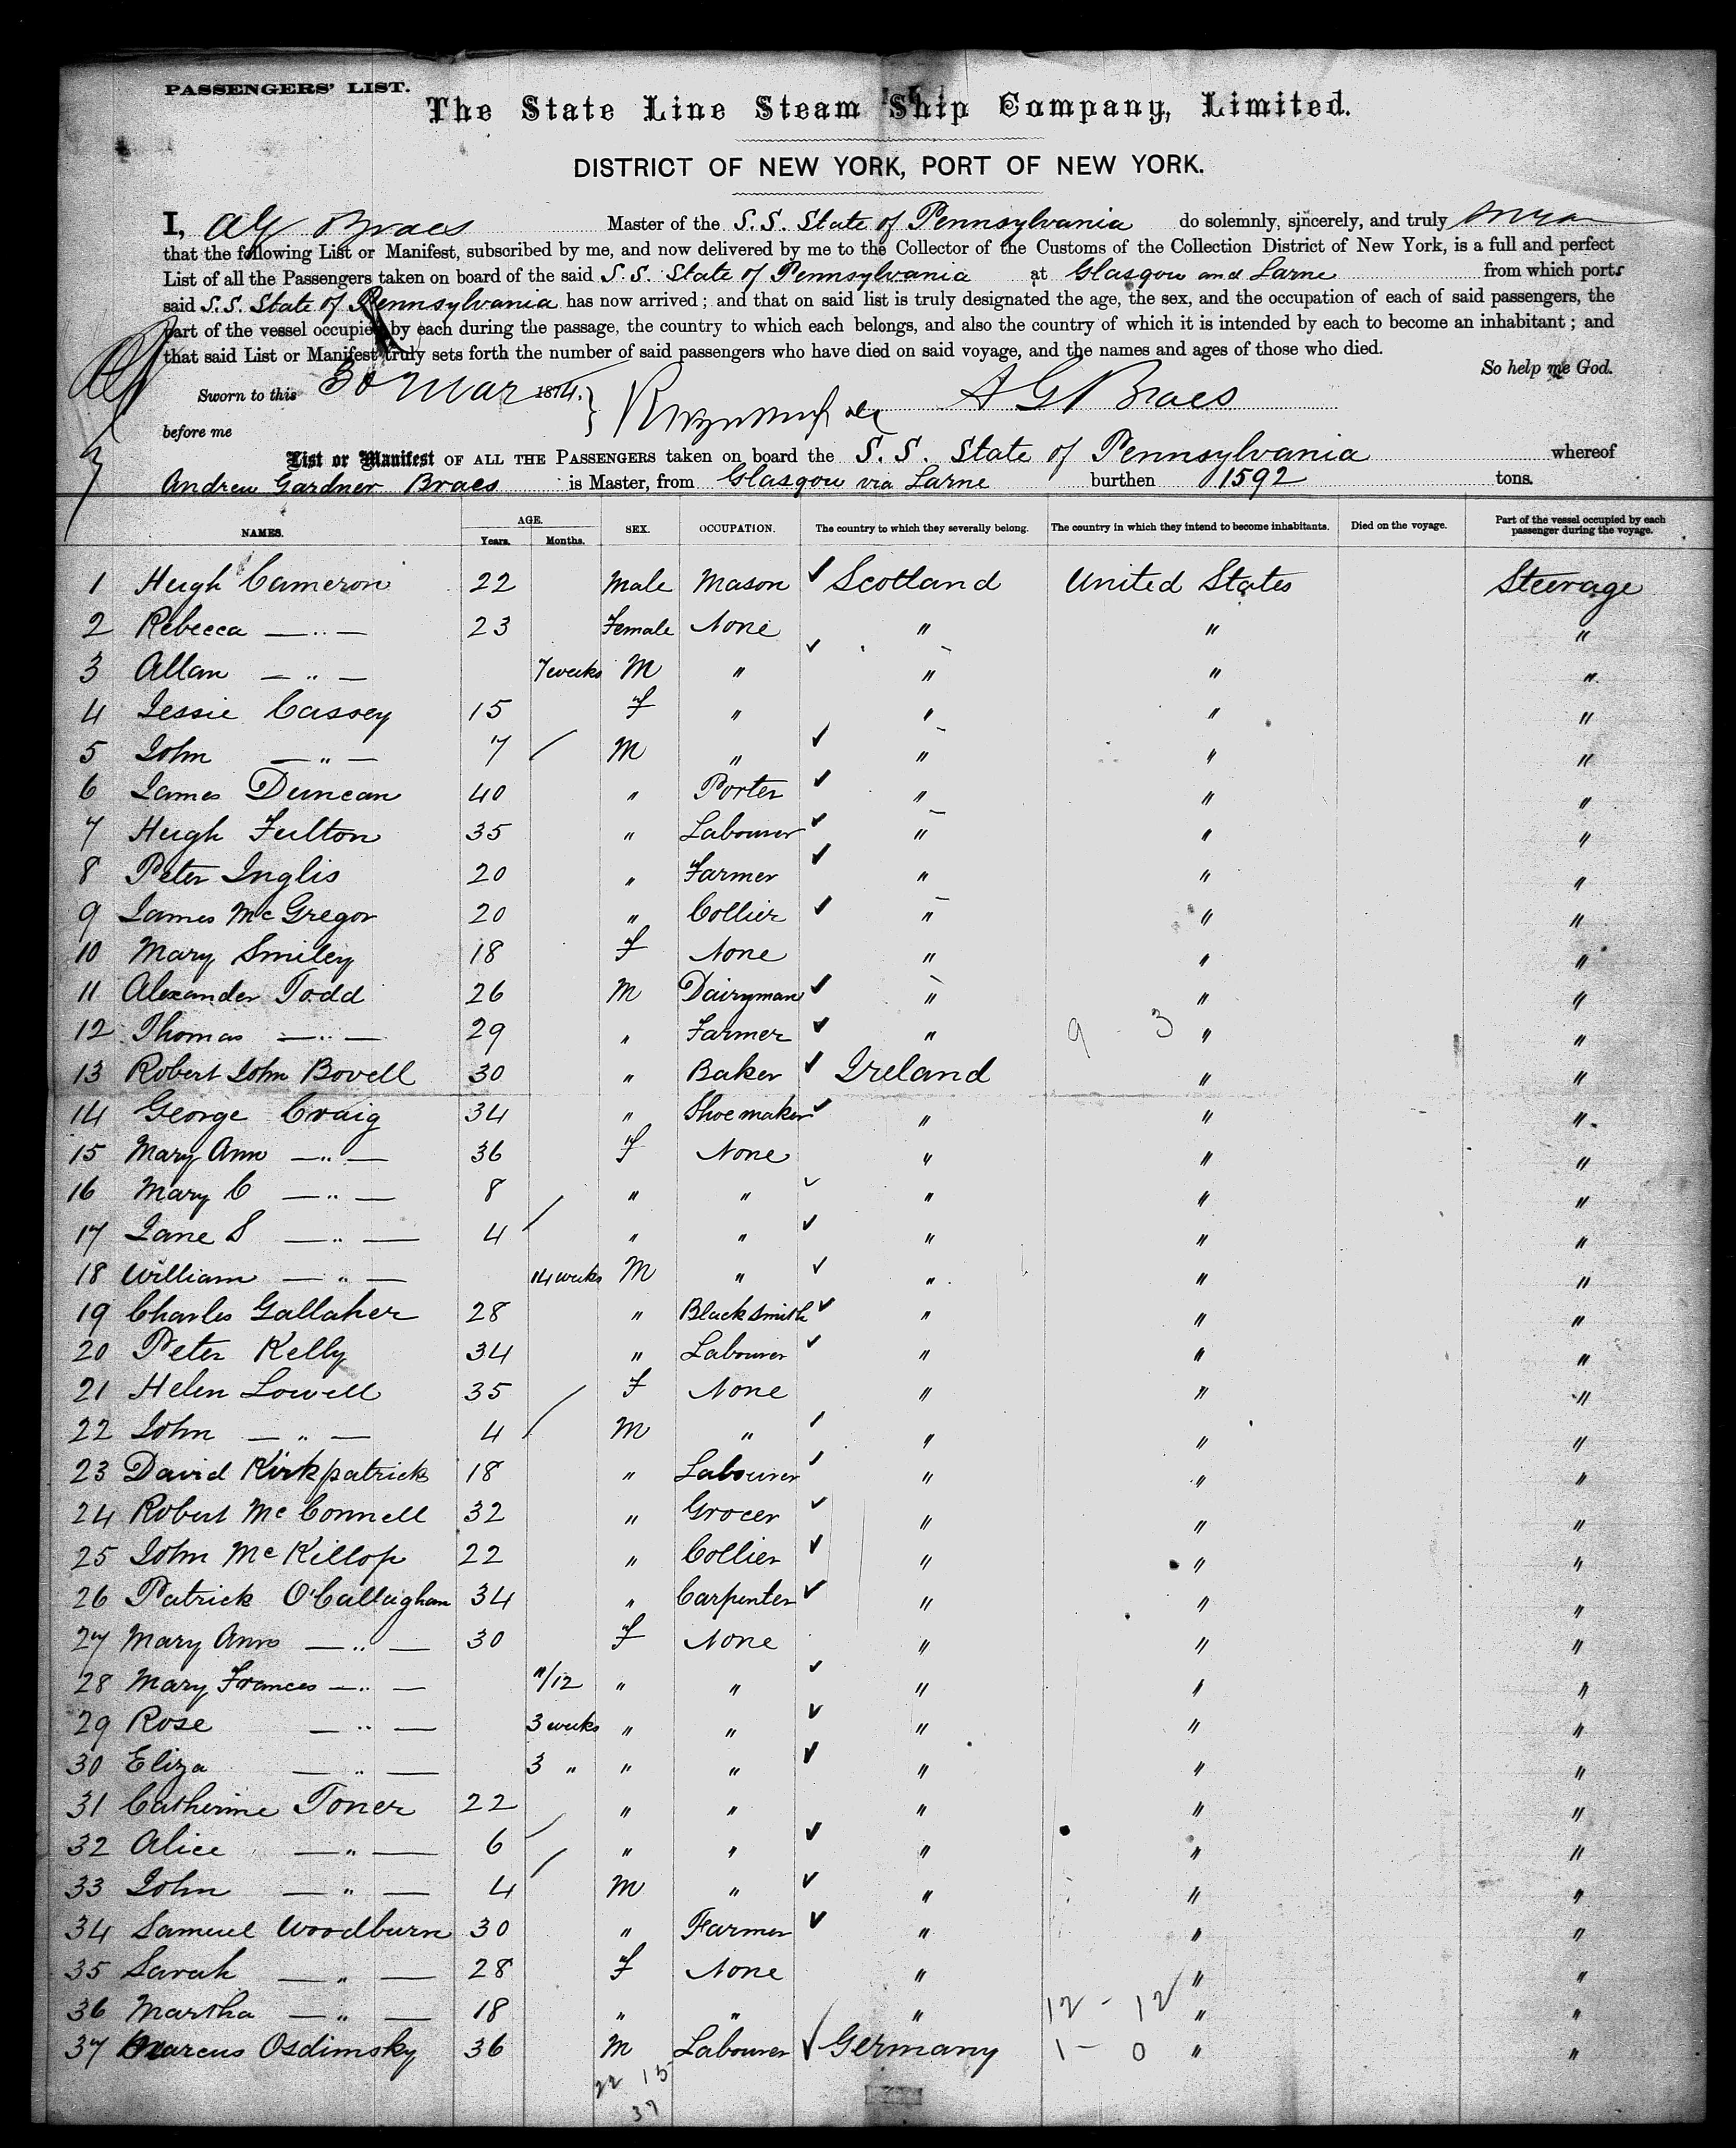 PASSENGERS' LIST.
The State Line Steam Ship Company, Limited.
DISTRICT OF NEW YORK, PORT OF NEW YORK.
I, A G Braes Master of the S.S. State of Pennsylvania do solemnly, sincerely, and truly
that the following List or Manifest, subscribed by me, and now delivered by me to the Collector of the Customs of the Collection District of New York, is a full and perfect
List of all the Passengers taken on board of the said S.S. State of Pennsylvania at Glasgow and Larne from which ports
said S.S. State of Pennsylvania has now arrived; and that on said list is truly designated the age, the sex, and the occupation of each of said passengers, the
part of the vessel occupied by each during the passage, the country to which each belongs, and also the country of which it is intended by each to become an inhabitant; and
that said List or Manifest truly sets forth the number of said passengers who have died on said voyage, and the names and ages of those who died.
So help me God.
Sworn to this 30 Mar 1874. A G Braes
before me
List or Manifest OF ALL THE PASSENGERS taken on board the S.S. State of Pennsylvania whereof
Andrew Gardner Braes is Master, from Glasgow via Larne burthen 1592 tons.
NAMES. AGE. Years. Months. SEX. OCCUPATION. The country to which they severally belong. The country in which they intend to become inhabitants. Died on the voyage. Part of the vessel occupied by each passenger during the voyage.
1 Hugh Cameron 22 Male Mason Scotland United States Steerage
2 Rebecca — " — 23 Female None " " "
3 Allan — " — 7 weeks M " " " "
4 Jessie Cassey 15 f " " " "
5 John — " — 7 M " " " "
6 James Duncan 40 " Porter " " "
7 Hugh Fulton 35 " Labourer " " "
8 Peter Inglis 20 " Farmer " " "
9 James McGregor 20 " Collier " " "
10 Mary Smiley 18 f None " " "
11 Alexander Todd 26 M Dairyman " " "
12 Thomas — " — 29 " Farmer " 9 - 3 " "
13 Robert John Bovell 30 " Baker Ireland " "
14 George Craig 34 " Shoemaker " " "
15 Mary Ann — " — 36 f None " " "
16 Mary C — " — 8 " " " " "
17 Jane S — " — 4 " " " " "
18 William — " — 14 weeks M " " " "
19 Charles Gallaher 28 " Blacksmith " " "
20 Peter Kelly 34 " Labourer " " "
21 Helen Lowell 35 F None " " "
22 John — " — 4 M " " " "
23 David Kirkpatrick 18 " Labourer " " "
24 Robert McConnell 32 " Grocer " " "
25 John McKillop 22 " Collier " " "
26 Patrick O'Callaghan 34 " Carpenter " " "
27 Mary Ann — " — 30 f None " " "
28 Mary Frances — " — 11/12 " " " " "
29 Rose — " — 3 weeks " " " " "
30 Eliza — " — 3 " " " " " "
31 Catherine Toner 22 " " " " "
32 Alice — " — 6 " " " " "
33 John — " — 4 M " " " "
34 Samuel Woodburn 30 " Farmer " " "
35 Sarah — " — 28 f None " " "
36 Martha — " — 18 " " " 12 - 12 " "
37 Marcus Osdimsky 36 M Labourer Germany 1 - 0 " "
22 15
37